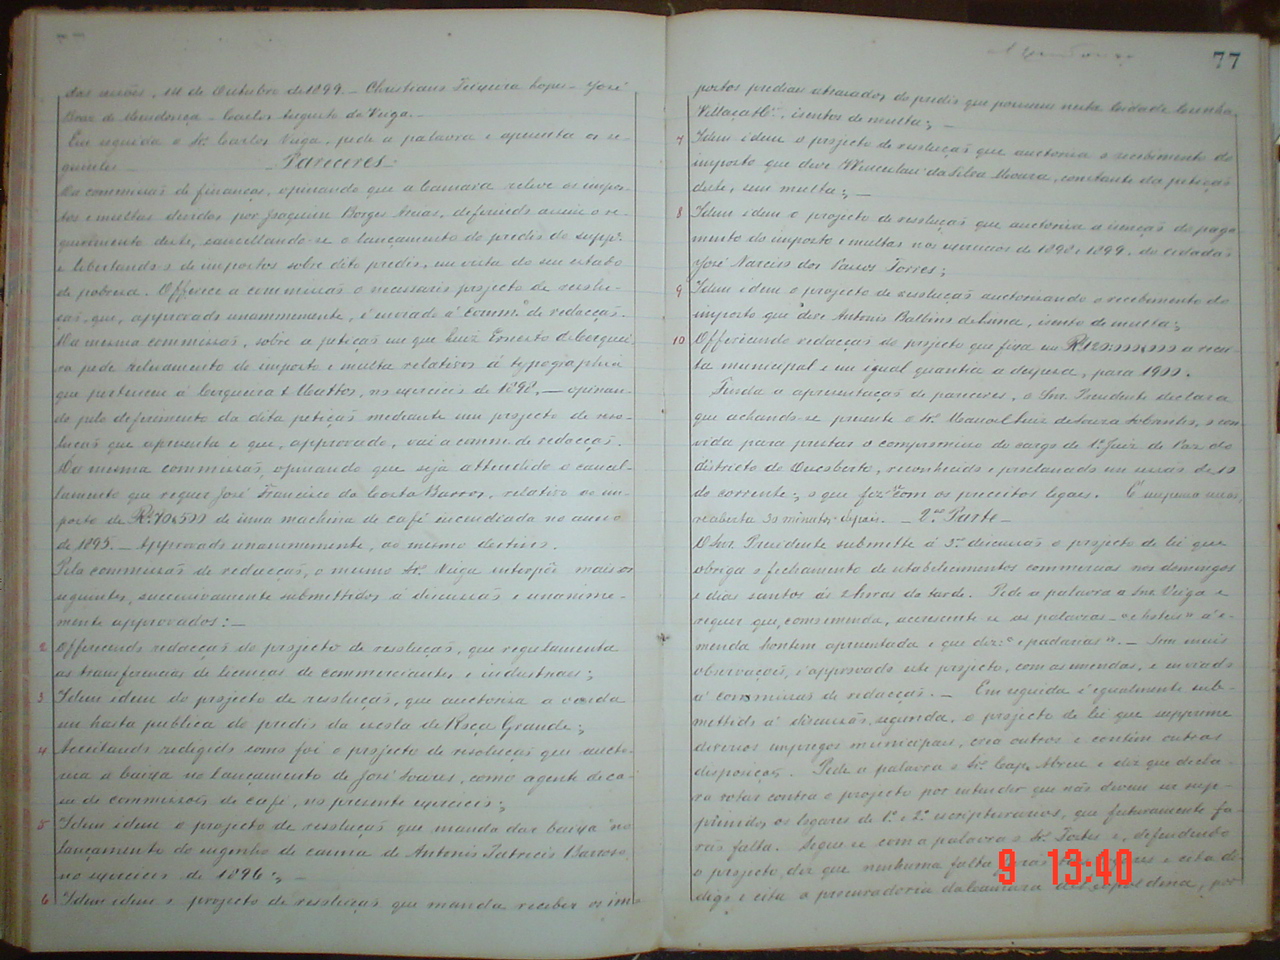 das sessões, 14 de Outubro de 1899. – Christiano Teixeira Lopes – José
Boar de Mendonça – Carlos Augusto da Veiga. –
Em seguida o Sr. Carlos Veiga, pede a palavra e apresenta os se-
guintes Pareceres:
Da commissão de finanças, opinando que a Camara releve os impos-
tos e multas devidos por Joaquim Borges Neias, deferindo assim o re-
querimento deste, cancellando-se o lançamento do predio do suppe.
e libertando-o de impostos sobre dito predio, em vista do seu estado
de pobreza. Offerece a commissão o necessario projecto de resolu-
ção, que, approvado unanimemente, é enviado á comm. de redacção.
Da mesma commissão, sobre a petição em que Luiz Ernesto de Cerquei-
ra pede relevamento do imposto e multa relativos á typographia
que pertenceu á Cerqueira & Mattos, no exercicio de 1898, – opinan-
do pelo deferimento da dita petição mediante um projecto de reso-
lução que apresenta e que, approvado, vai a comm. de redacção.
Da mesma commissão, opinando que seja attendido o cancel-
lamento que requer José Francisco da Costa Barros, relativo ao im-
posto de de uma machina de café incendiada no anno
de 1895. – Approvado unanimemente, ao mesmo destino.
Pela commissão de redacção, o mesmo Sr. Veiga interpõe mais os
seguintes, successivamente submettidos á discussão e unanime-
mente approvados: –
2 Offerecendo redacção do projecto de resolução, que regulamenta
as transferencias de licenças de commerciantes e industriaes;
3 Idem idem do projecto de resolução, que auctorisa a venda
em hasta publica do predio da escola de Roça Grande;
4 Acceitando redigido como foi o projecto de resolução que aucto-
risa a baixa no lançamento de José Soares, como agente de ca-
sa de commissões de café, no presente exercicio;
5 Idem idem o projecto de resolução que manda dar baixa no
lançamento do engenho de canna de Antonio Patricio Barroso,
no exercicio de 1896; –
6 Idem idem o projecto de resolução que manda receber os im-
77
postos prediaes atrasados do predio que possuem nesta cidade Cunha,
Villaça & Cia., isentos de multa; –
7 Idem idem o projecto de resolução que auctorisa o recebimento do
imposto que deve Wenceslau da Silva Moura, constante da petição
deste, sem multa; –
8 Idem idem o projecto de resolução que auctorisa a isenção do paga-
mento do imposto e multas nos exercicios de 1898 e 1899, do cidadão
José Narciso dos Passos Torres;
9 Idem idem o projecto de resolução auctorisando o recebimento do
imposto que deve Antonio Balbino de Lima, isento de multa;
10 Offerecendo redacção do projecto que fixa em Rs. 120:000$000 a recei-
ta municipal e em igual quantia a despeza, para 1900.
Finda a apresentação de pareceres, o Snr. Presidente declara
que achando-se presente o Sr. Manoel Luiz de Souza, o con-
vida para prestar o compromisso do cargo de 1º. Juiz de Paz do
districto de, reconhecido e proclamado em sessão de 10
do corrente; o que fez com os preceitos legaes. É suspensa a sessão,
reaberta 30 minutos depois. – 2ª. Parte –
O Snr. Presidente submette á 3ª. discussão o projecto de lei que
obriga o fechamento de estabelecimentos commerciaes nos domingos
e dias santos ás 2 horas da tarde. Pede a palavra o Snr. Veiga e
requer que, como emenda, accrescente-se as palavras – "e hoteis" á e-
menda hontem apresentada e que diz: "e padarias". – Sem mais
observações, é approvado este projecto, com as emendas, e enviado
á commissão de redacção. – Em seguida é egualmente sub-
mettido á discussão, segunda, o projecto de lei que supprime
diversos empregos municipaes, crea outros e contém outras
disposições. Pede a palavra o Sr. Cap. Abreu e diz que decla-
ra votar contra o projecto por entender que não devem ser sup-
primidos os logares de 1º. e 2º. escripturarios, que futuramente fa-
rão falta. Segue-se com a palavra o Sr. Fortes e, defendendo
o projecto, diz que nenhuma falta farão e cita
e cita a procuradoria da Camara de Leopoldina, por
9 13:40